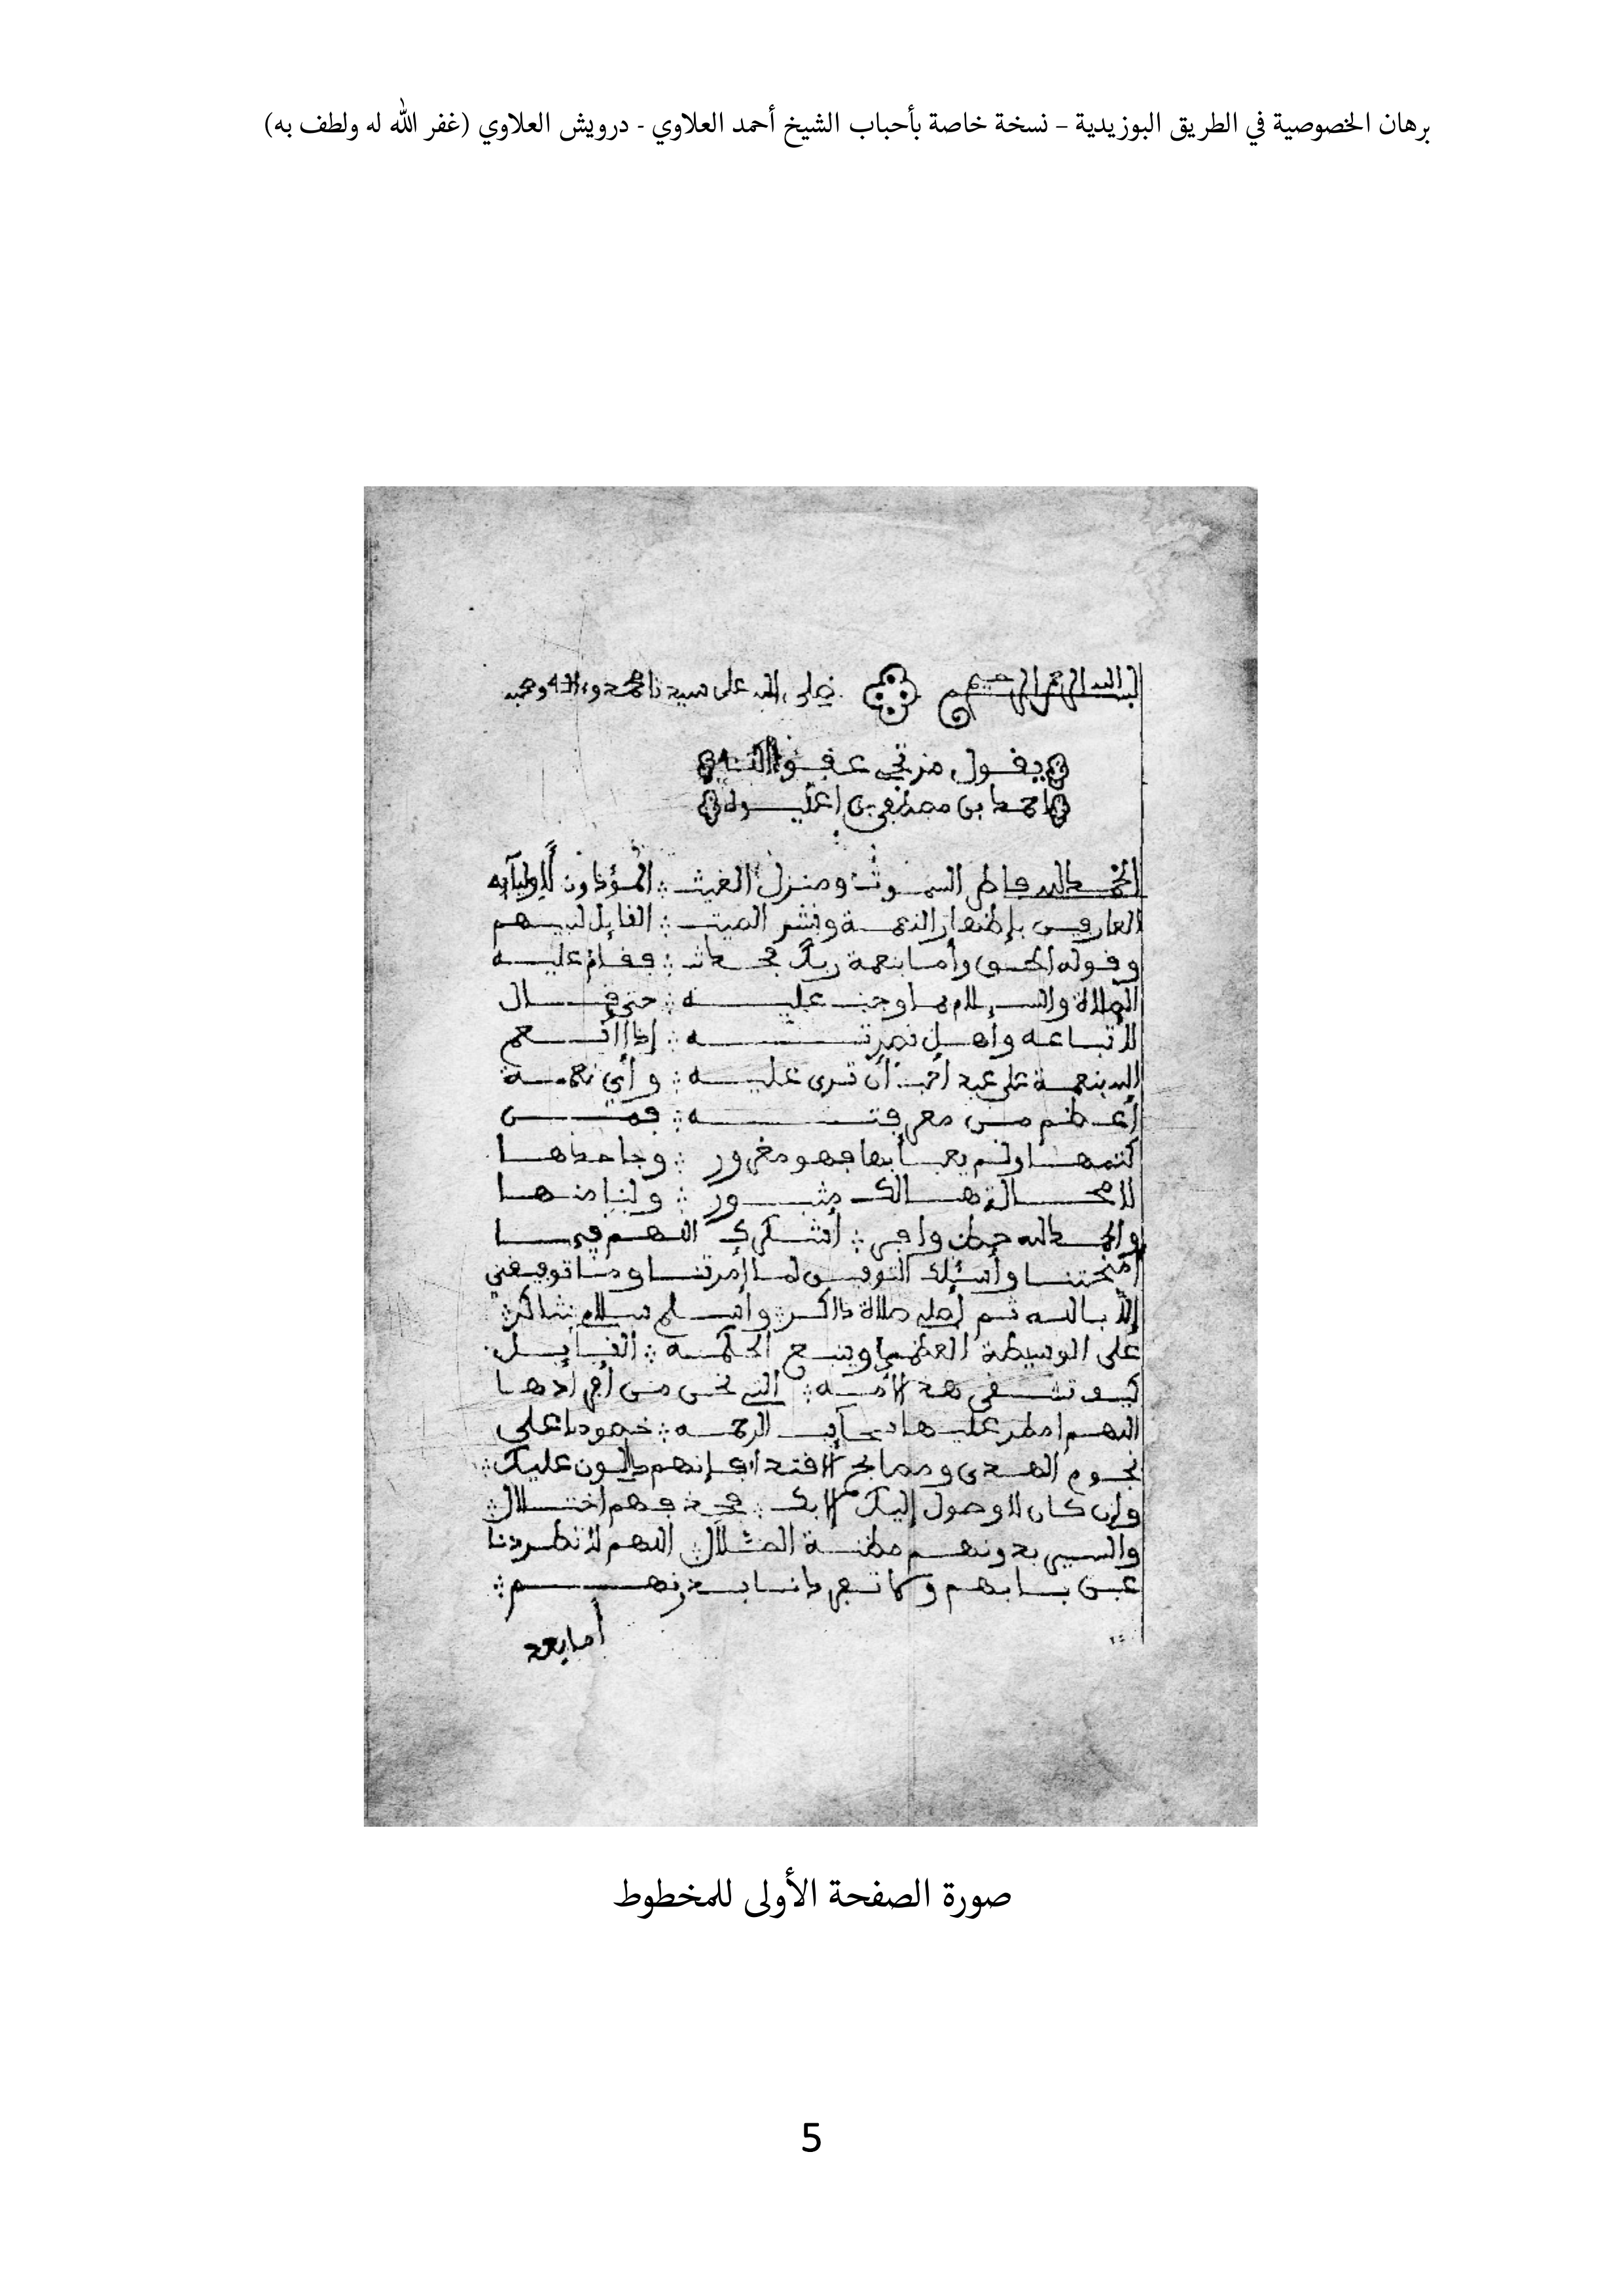 برهان الخصوصية في الطريق البوزيدية – نسخة خاصة بأحباب الشيخ أحمد العلاوي - درويش العلاوي (غفر الله له ولطف به)
بسم الله الرحمن الرحيم صلى الله على سيدنا محمد وءاله وصحبه
يقول مرتجي عفو الله
احمد بن مصطفى بن اعليوه
الحمد لله فاطر السموت ومنزل الغيث ؞ المؤذن لأوليآئه
العارفين بإظهار النعمة ونشر الميت ؞ القايل لنبيهم
وقوله الحق وأما بنعمة ربك فحدث ؞ فقام عليه
الصلاة والسلام بما وجب عليه ؞ حتى قال
لأتباعه وأهل نصرته ؞ إذا أنعم
الله بنعمة على عبد أحب أن ترى عليه ؞ وأي نعمة
أعظم من معرفته ؞ فمن
كتمها ولم يعبأ بها فهو مغرور ؞ وجاحدها
لا محالة هالك مثبور ؞ ولنا منها
والحمد لله حظ وافر ؞ أشكرك اللهم فيما
منحتنا وأسئلك التوفيق لما أمرتنا وما توفيقي
إلا بالله ثم أصلي صلاة ذاكر وأسلم سلام شاكر ؞
على الوسيطة العظمى وينبع الحكمة ؞ القايل
كيف تشقى هذه الأمة ؞ التي نحن من أفرادها
اللهم امطر عليها سحآيب الرحمة ؞ خصوصا على
نجوم الهدى ومصابح الاقتداء فإنهم دالون عليك ؞
وإن كان لا وصول إليك إلا بك ؞ فحذفهم اختلال
والسير بدونهم مظنة الضلال اللهم لا تطردنا
عن بابهم وكما تعرفنا بهم ؞
أما بعد
صورة الصفحة الأولى للمخطوط
5